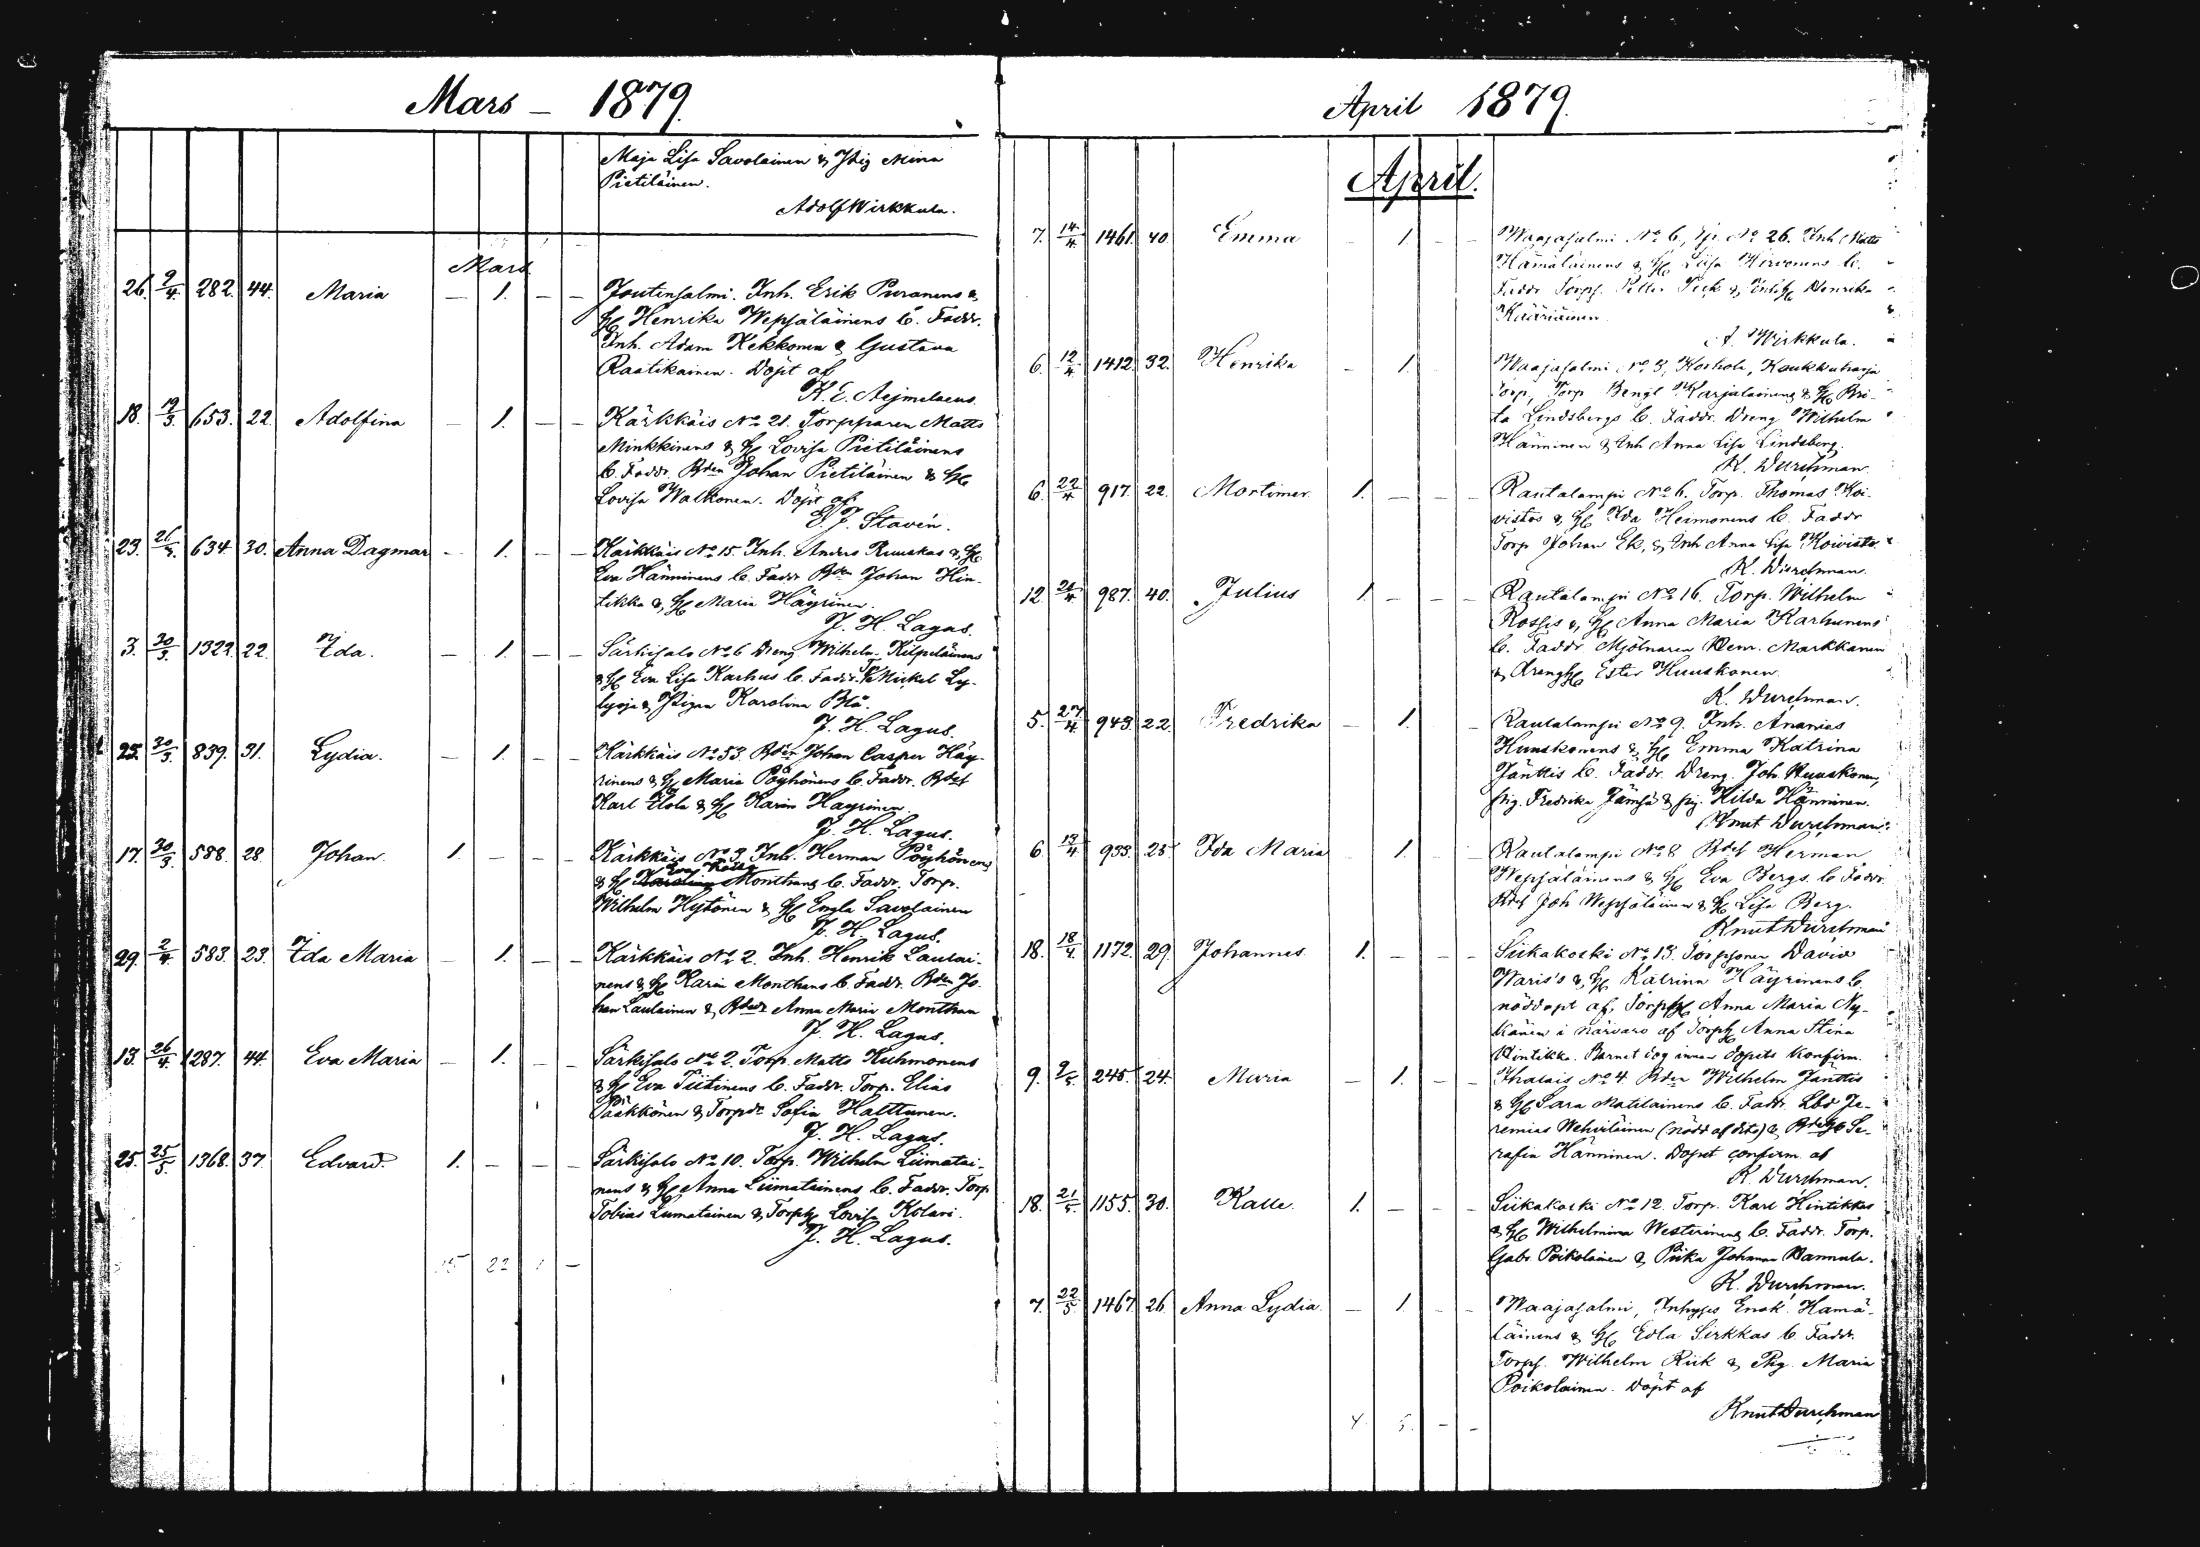 Mars – 1879.
Maja Lisa Savolainen & Pig Mina
Pietiläinen.
Adolf Wirkkula.
Mars
26. 9/4. 282. 44. Maria – 1. – – Joutensalmi. Inh. Erik Puranens &
H Henrika Wepsäläinens b. Faddr.
Inh. Adam Kekkonen & Gustava
Raatikainen. Döpt af
K. E. Aejmelaeus.
18. 19/3. 653. 22. Adolfina – 1. – – Kärkkäis No 21. Torpparen Matts
Minkkinens & H Lovisa Pietiläinens
b. Faddr. Bden Johan Pietiläinen & H
Lovisa Walkonen. Döpt af
E. J. Stavén.
23. 26/3. 634 30. Anna Dagmar – 1. – – Kärkkäis No 15. Inh. Anders Ruuskas & H
Eva Hänninens b. Faddr Bden Johan Hin-
tikka & H Maria Häyrinen.
J. H. Lagus.
3. 30/3. 1322. 22. Ida. – 1. – – Särkisalo No 6 Dreng Wilhelm Kilpeläinens
& H Eva Lisa Karhus b. Faddr. Mickel Ly-
lyoja & Pigan Karolina Blå.
J. H. Lagus.
25. 30/3. 839. 31. Lydia. – 1. – – Kärkkäis No 53. Bden Johan Casper Häy-
rinens & H Maria Pöyhönens b. Faddr. Bdes
Karl Ilola & H Karin Hayrinen.
J. H. Lagus.
17. 30/3. 588. 28. Johan 1. – – – Kärkkäis No 3. Inh. Herman Pöyhönens
& H Karolina Eva Monthans b. Faddr. Torp.
Wilhelm Hytönen & H Engla Savolainen
J. H. Lagus.
29. 2/4. 583. 23. Ida Maria – 1. – – Kärkkäis No 2. Inh. Henrik Laulai-
nens & H Karin Monthans b. Faddr. Bden Jo-
han Laulainen & Anna Maria Monthan
J. H. Lagus.
13. 26/4. 1287. 44. Eva Maria – 1. – – Särkisalo No 2. Torp. Matts Huhmonens
& H Eva Tiitinens b. Faddr. Torp. Elias
Pääkkönen & Torpdr Sofia Halttunen.
J. H. Lagus.
25. 25/5. 1368. 37. Edvard. 1. – – – Särkisalo No 10. Torp. Wilhelm Liimatai-
nens & H Anna Liimatainens b. Faddr. Torp
Tobias Limatainen & Torph Lovisa Kolari.
J. H. Lagus.
15 22 1 –
April 1879.
April.
7. 14/4. 1461. 40. Emma – 1. – – Waajasalmi No 6, No 26. Inh Matts
Hämäläinens & H Lisa Hirvonens b.
Faddr Torps. Petter Piek & Henrika
Kääriäinen
A. Wirkkula.
6. 12/4 1412. 32. Henrika – 1. – – Waajasalmi No 3, Korhola, Koukkuharju
Torp, Torp Bengt Karjalainens & H Bri-
ta Lindsbergs b. Faddr. Dreng Wilhelm
Hänninen & Inh Anna Lisa Lindsberg.
K. Durchman.
6. 22/4 917. 22. Mortimer 1. – – – Rautalampi No 6. Torp. Thomas Koi-
vistos & H Ida Heimonens b. Faddr
Torp Johan Ek, & Inh Anna Lisa Koivisto.
K. Durchman.
12. 21/4. 987. 40. Julius 1. – – – Rautalampi No 16. Torp. Wilhelm
Rossis & H Anna Maria Karhunens
b. Faddr Mjölnaren Henr. Markkanen
& drengh Ester Huuskonen.
K. Durchman.
5. 27/4. 943. 22. Fredrika – 1. – Rautalampi No 9. Inh. Ananias
Huuskonens & H Emma Katrina
Jänttis b. Faddr. Dreng. Joh. Huuskonen,
pig. Fredrika Jämsä & pig. Hilda Hänninen.
Knut Durchman.
6. 13/4 933. 25. Ida Maria 1. – Rautalampi No 8 Bdes Herman
Wepsäläinens & H Eva Bergs. b. Faddr.
Bdes Joh Wepsäläinen & H Lisa Berg.
Knut Durchman
18. 18/4. 1172. 29. Johannes. 1. – – – Siikakoski No 13. Torpparen David
Waris's & H Katrina Häyrinens b.
nöddöpt af Torph Anna Maria Ny-
känen i närvaro af Torph Anna Stina
Hintikka. Barnet dog innan dopets konfirm.
9. 9/5. 245. 24. Maria – 1. – – Ihalais No 4. Bden Wilhelm Jänttis
& H Sara Matilainens b. Faddr. Lbd Je-
remias Wehviläinen (nödd af dito) & Se-
rafia Hänninen. Dopet confirm. af
K. Durchman.
18. 21/5. 1155. 30. Kalle. 1. – – – Siikakoski No 12. Torp. Karl Hintikkas
& H Wilhelmina Westerinens b. Faddr. Torp.
Gabr Poikolainen & Piika Johanna Hannula.
K. Durchman.
7. 22/5 1467. 26. Anna Lydia. – 1. – – Waajasalmi, Inhyses Enok Hämä-
läinens & H Edla Sirkkas b. Faddr.
Torps. Wilhelm Riik & Pig. Maria
Poikolainen. Döpt af
Knut Durchman
4. 5. – –